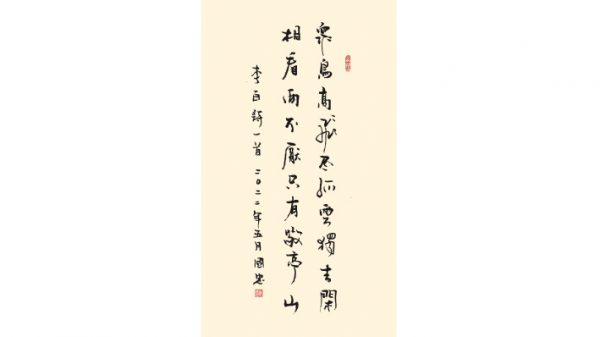 衆鳥高飛尽孤雲獨去閑
相看兩不厭只有敬亭山
李白詩一首 二〇二二年五月國忠